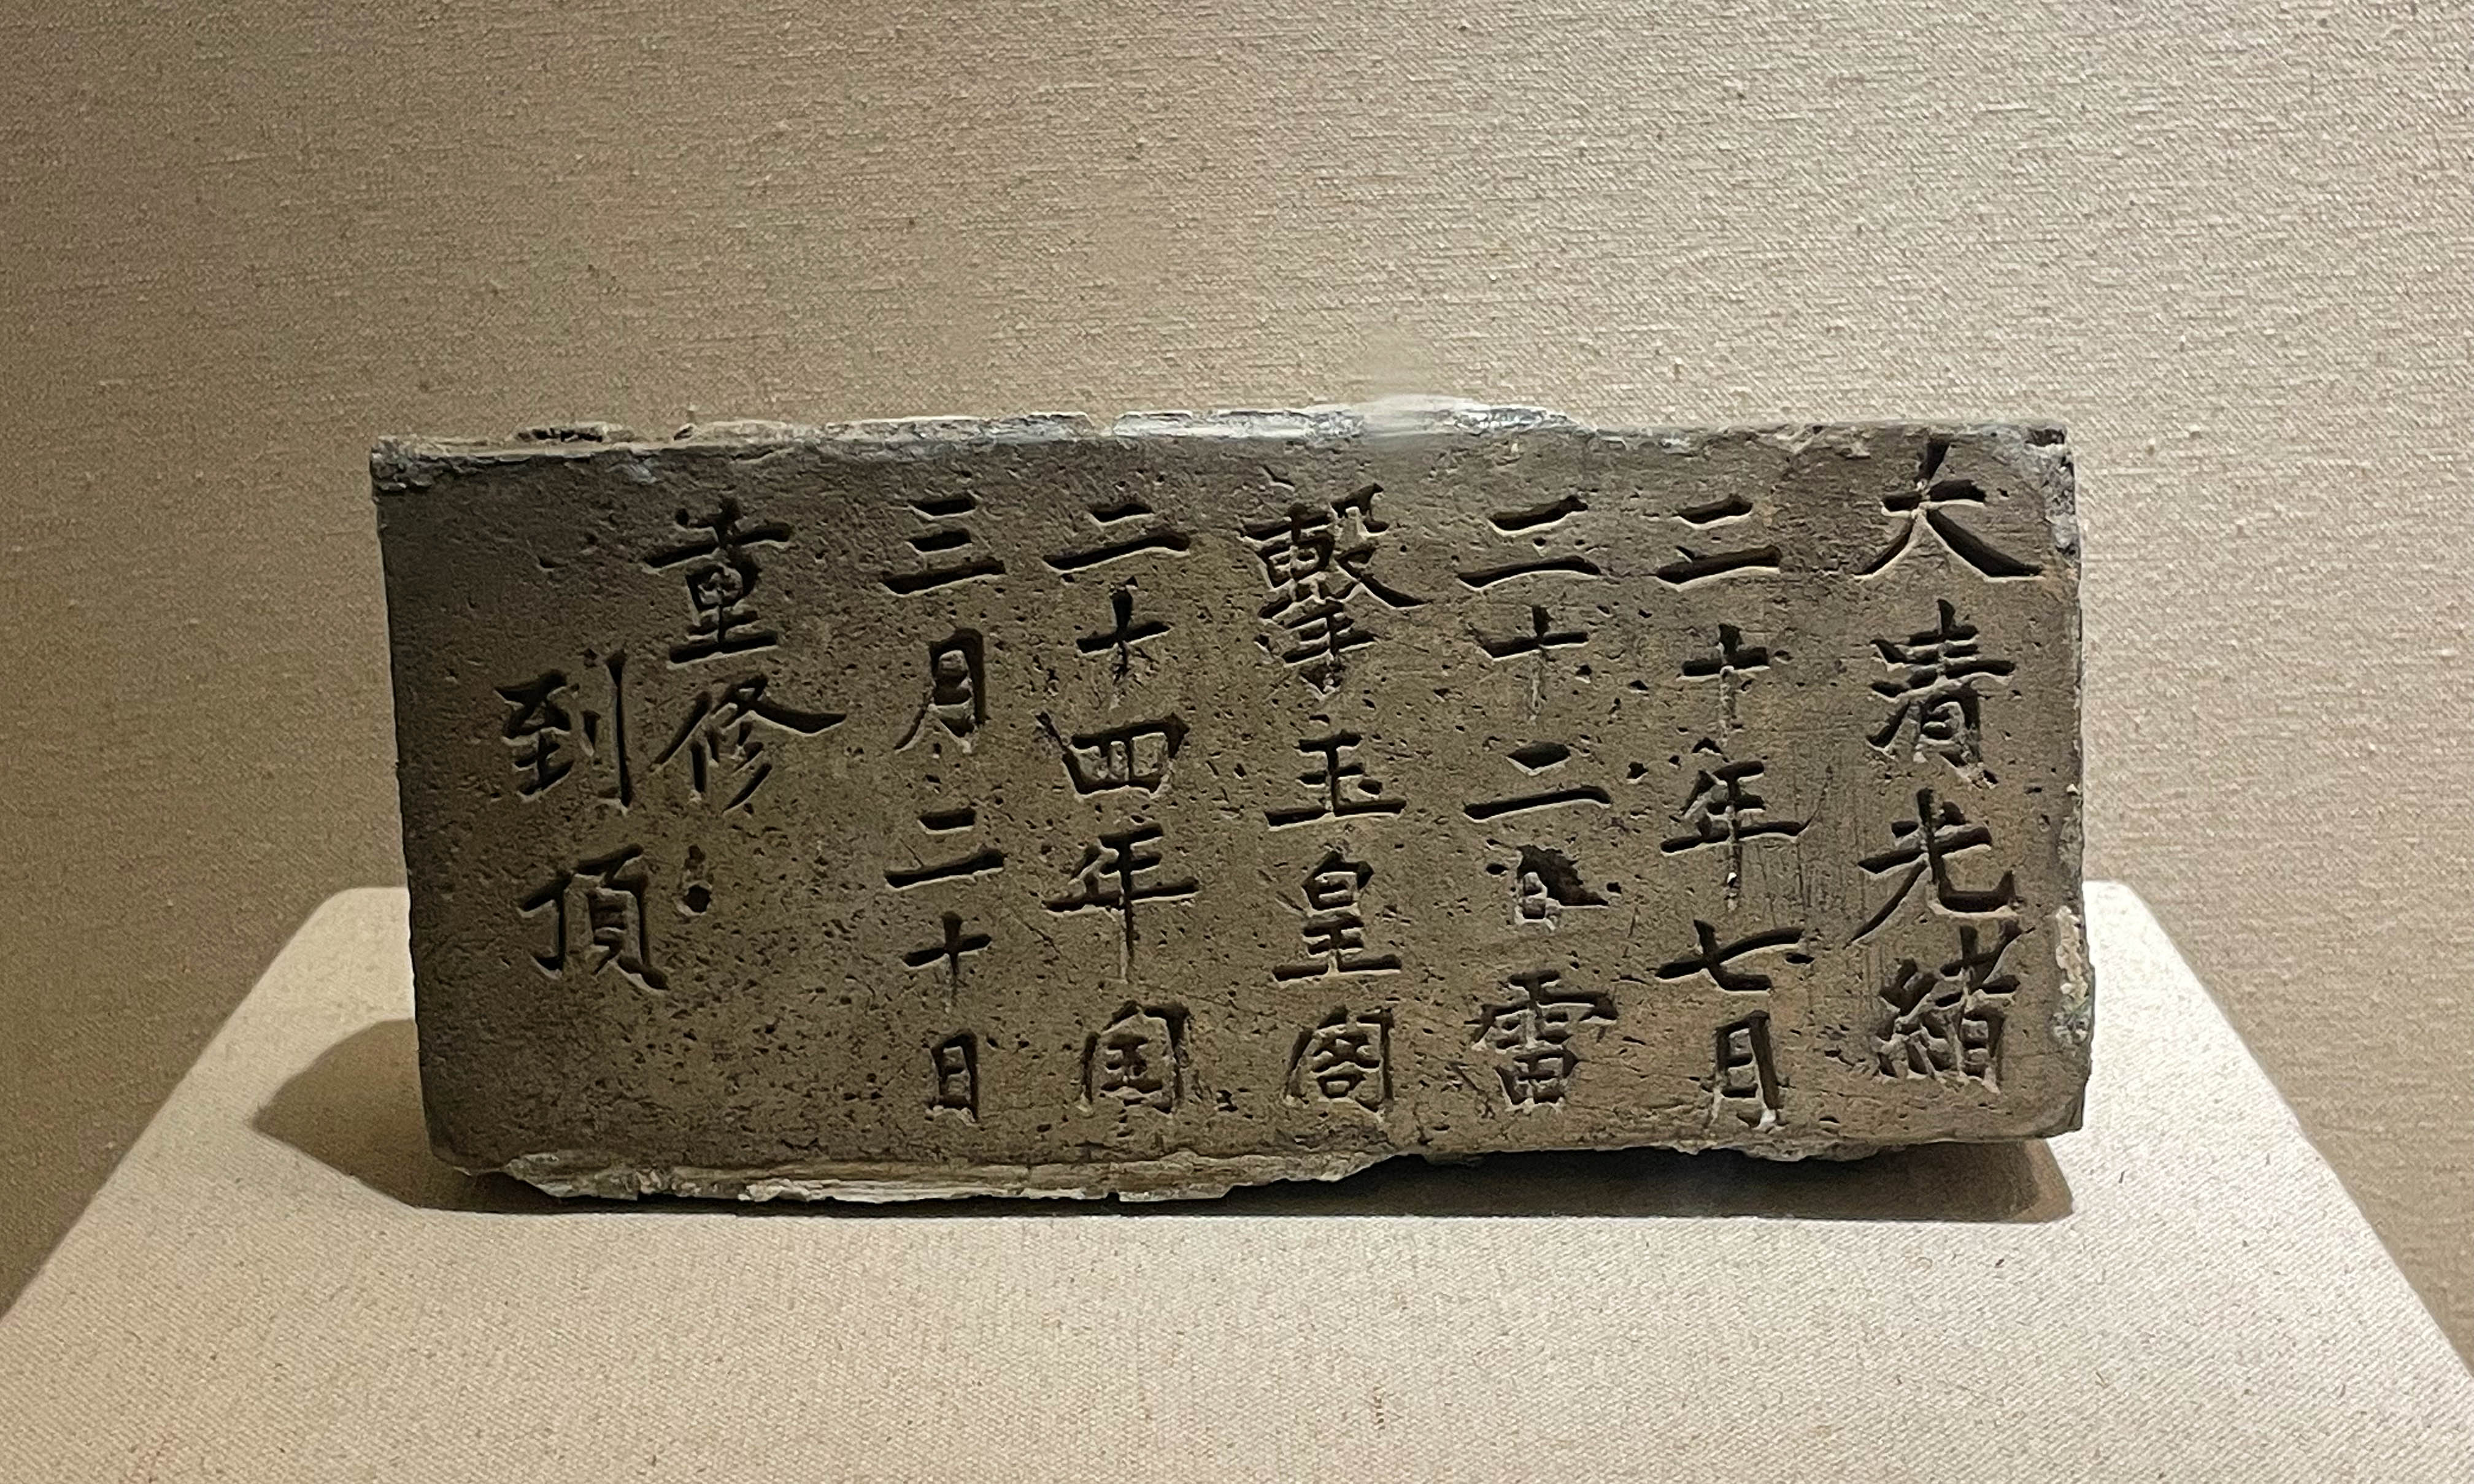 大清光緒
二十年七月
二十二日雷
擊玉皇阁
二十四年闰
三月二十日
重修
到頂